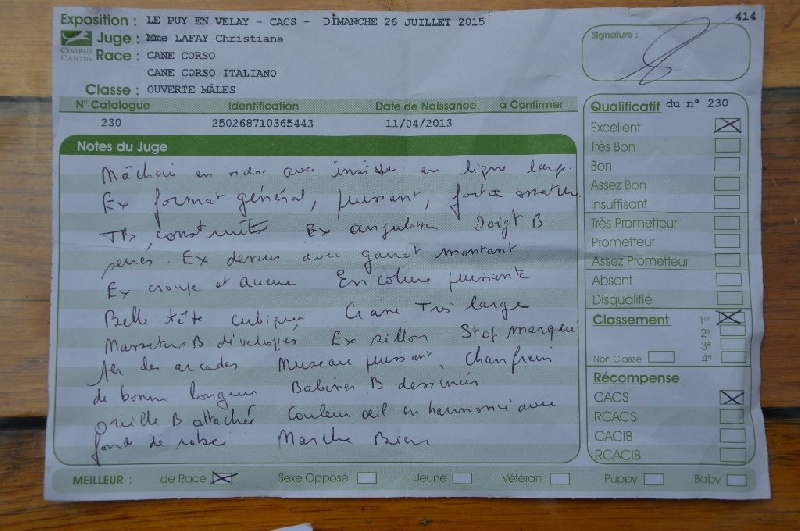 Exposition : LE PUY EN VELAY - CACS - DIMANCHE 26 JUILLET 2015
414
Juge : Mme LAFAY Christiane
Race : CANE CORSO
CANE CORSO ITALIANO
Classe : OUVERTE MÂLES
Signature :
N° Catalogue Identification Date de Naissance à Confirmer
230 250268710365443 11/04/2013
Qualificatif du n° 230
Excellent
Très Bon
Bon
Assez Bon
Insuffisant
Très Prometteur
Prometteur
Assez Prometteur
Absent
Disqualifié
Classement 1er
2e
3e
Non Classé 4e
Récompense
CACS
RCACS
CACIB
RCACIB
Notes du Juge
Mâchoire en avec incisives en ligne large
Ex format général, puissant, forte ossature
TB construit Ex angulation Doigt B
serrés. Ex dessus avec garrot montant
Ex croupe et Encolure puissante
Belle tête cubique Crane Très large
Masseters B développés Ex sillon Stop marqué
les arcades Museau puissant, Chanfrein
de bonne longueur Babines B dessinées
oreille B attachée Couleur œil en harmonie avec
fond de robe Marche Bien
MEILLEUR : de Race Sexe Opposé Jeune Vétéran Puppy Baby